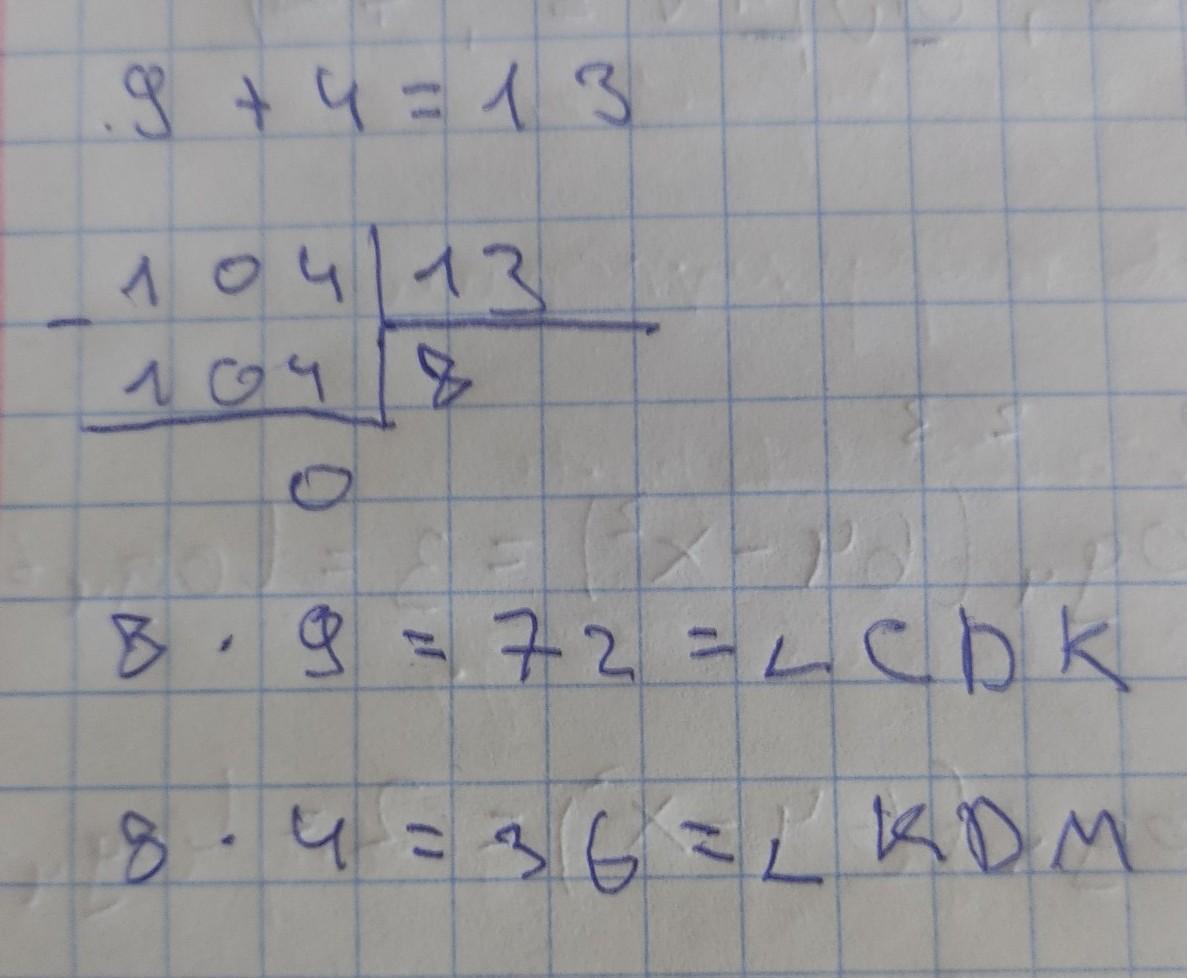 9 + 4 = 13
- 104 | 13
104 | 8
0
8 · 9 = 72 = ∠CDK
8 · 4 = 36 = ∠KDM